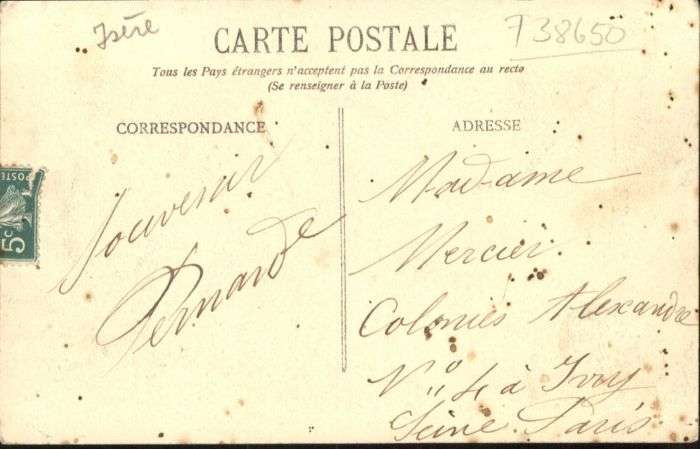 Isère
738650
CARTE POSTALE
Tous les Pays étrangers n'acceptent pas la Correspondance au recto
(Se renseigner à la Poste)
CORRESPONDANCE
ADRESSE
POSTE
5c
Souvenir
Madame
Mercier
Colonies Alexandre
N° 4 à Ivry
Seine Paris